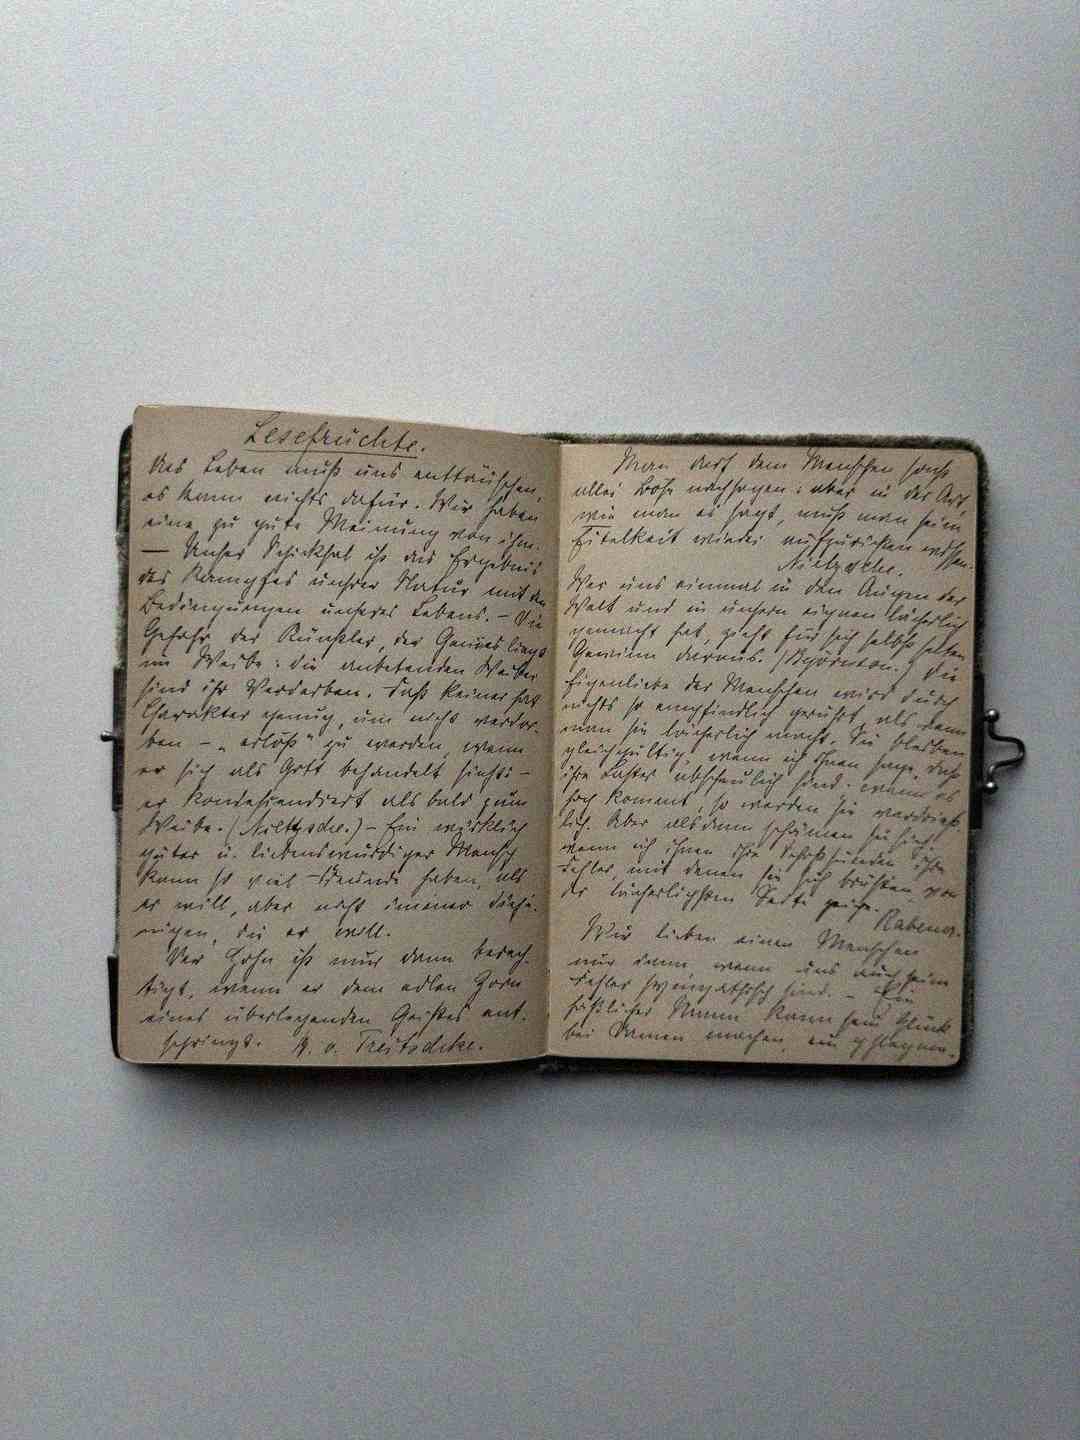 Lesefrüchte.
Das Leben muß uns enttäuschen,
es kann nichts dafür. Wir haben
eine zu gute Meinung von ihm.
— Unser Schicksal ist das Ergebnis
des Kampfes unsrer Natur mit den
Bedingungen unseres Lebens. – Die
Gefahr der Künstler, der Genies liegt
im Weibe: die anbetenden Weiber
sind ihr Verderben. Fast keiner hat
Charakter genug, um nicht verdor-
ben – „erlöst" zu werden, wenn
er sich als Gott behandelt sieht: –
er kondescendirt alsbald zum
Weibe. (Nietzsche.) – Ein wirklich
guter u. liebenswürdiger Mensch
kann so viel Freunde haben, als
er will, aber nicht immer dieje-
nigen, die er will.
Der Hohn ist nur dann berech-
tigt, wenn er dem edlen Zorn
eines überlegenden Geistes ent-
springt. H. v. Treitschke.
Man darf dem Menschen sonst
alles Böse nachsagen: aber in der Art,
wie man es sagt, muß man seine
Eitelkeit wieder aufzurichten wissen.
Nietzsche.
Wer uns einmal in den Augen der
Welt und in unsern eignen lächerlich
gemacht hat, zieht für sich selbst selten
Gewinn daraus. (Björnson.) Die
Eigenliebe der Menschen wird durch
nichts so empfindlich gerührt, als wenn
man sie lächerlich macht. Sie bleiben
gleichgültig, wenn ich ihnen sage, daß
ihre Laster abscheulich sind: wenn es
hoch kommt, so werden sie verdrieß-
lich. Aber alsdann schämen sie sich,
wenn ich ihnen ihre Schoßsünden, ihre
Fehler, mit denen sie sich brüsten, von
der lächerlichsten Seite zeige.
Rabener.
Wir lieben einen Menschen
nur dann, wenn uns auch seine
Fehler sympathisch sind. – Ein
häßlicher Mann kann sein Glück
bei Damen machen, ein